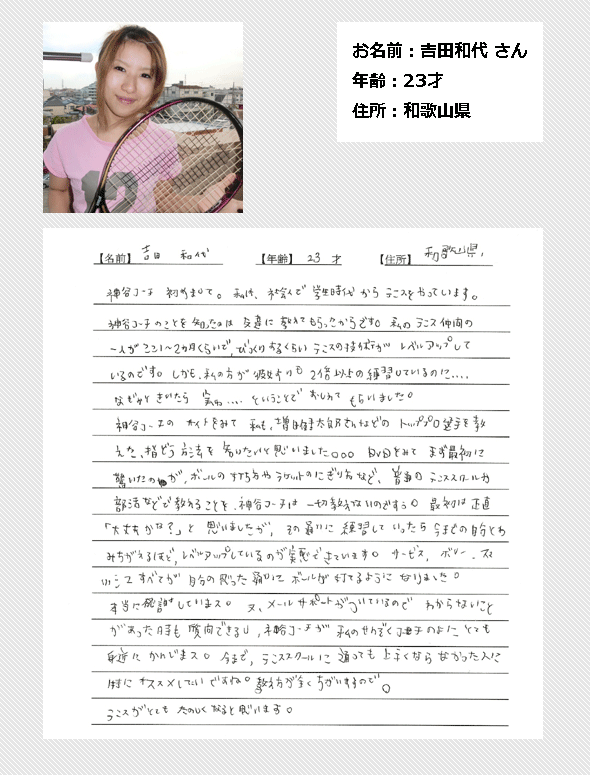 お名前：吉田和代 さん
年齢：23才
住所：和歌山県
【名前】 吉田 和代 【年齢】 23 才 【住所】 和歌山県
神谷コーチ 初めまして。私は、社会人で学生時代からテニスをやっています。
神谷コーチのことを知ったのは 友達に教えてもらったからです。私のテニス仲間の
一人がここ1~2ヵ月くらいで、びっくりするくらいテニスの技術が レベルアップして
いるのです。しかも、私の方が彼女よりも 2倍以上の練習しているのに....
なぜかときいたら 実は.... ということで おしえて もらいました。
神谷コーチの サイトをみて 私も、増田健太郎さんなどの トッププロ選手を教
えた、指導方法を 知りたいと思いました。。。 DVDをみて まず最初に
驚いたのが、ボールの打ち方やラケットのにぎり方など、普通のテニススクールや
部活などで教えることを、神谷コーチは 一切教えないのですよう。最初は正直
「大丈夫かな?」と 思いましたが、その通りに 練習して いったら 今までの自分とわ
みちがえるほど、レベルアップしているのが実感できています。サービス、ボレー、ス
マッシュ すべてが 自分の思った通りに ボールが打てるように なりました。
本当に感謝しています。又、メールサポートがついているので わからないこと
があった時も 質問できるし、神谷コーチが 私の せんぞくコーチのように とても
身近に かんじます。今まで、テニススクールに 通っても上手くならなかった人に
特に オススメしたいですね。教え方が全くちがいますので。
テニスがとても たのしくなると思います。